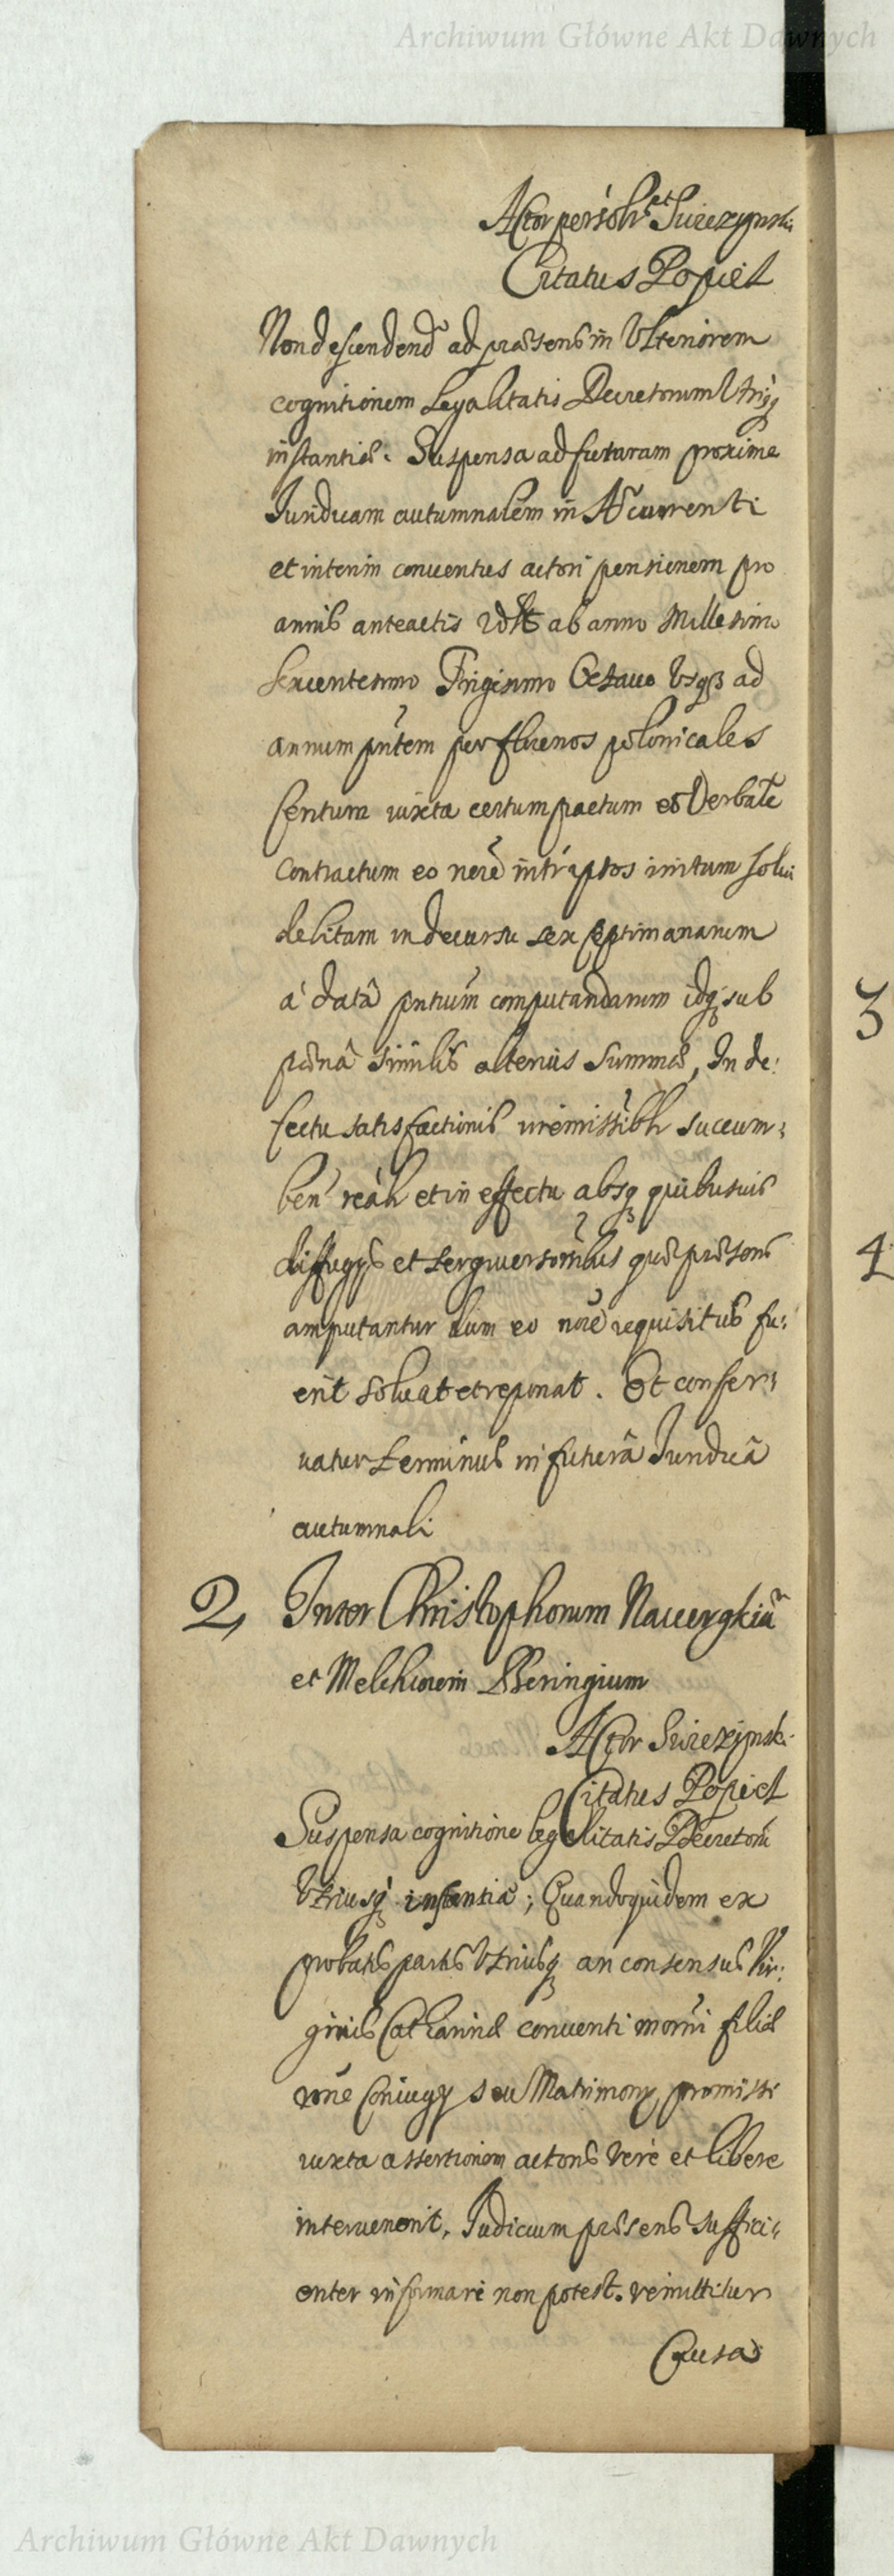 Archiwum Główne Akt Dawnych
Actor persolr et Swiezynski
Citatus Popiel
Non descendend ad præsens in Ulteriorem
cognitionem Legalitatis Decretorum Utriq
instantiæ. Suspensa ad futuram proxime
Juridicam autumnalem in Ao currenti
et interim conuentus actori pensionem pro
annis anteactis ab anno Millesimo
Sexcentesimo Trigesimo Octauo Usq ad
annum pntem per florenos polonicales
Centum iuxta certum pactum et Verbale
Contractum eo nore intr ipsos initum solui
debitam in decursu sex septimanarum
à datâ pntium computandarum idq sub
pœnâ similis alterius summæ, In de:
fectu satisfactionis irremissiblr succum:
ben reâlr et in effectu absq quibusuis
diffugys et tergiuersonibus quæ præsens
amputantur dum eo nore requisitus fu:
erit soluat et reponat. Et conser:
uatur terminus in futurâ Juridicâ
autumnali
2, Inter Christophorum Nauergkiu
et Melchiorem Beringium
Actor Swiezynski
Citatus Popiel
Suspensa cognitione legalitatis Decretoru
Utriusq instantiæ; Quandoquidem ex
probatis partis Utriusq an consensus Vir:
ginis Catharinæ conuenti filiæ
rone Coniugy seu Matrimony promissi
iuxta assertionem actoris verè et liberè
interuenerit, Judicium præsens suffici:
enter informari non potest. remittitur
Causa
3
4
Archiwum Główne Akt Dawnych